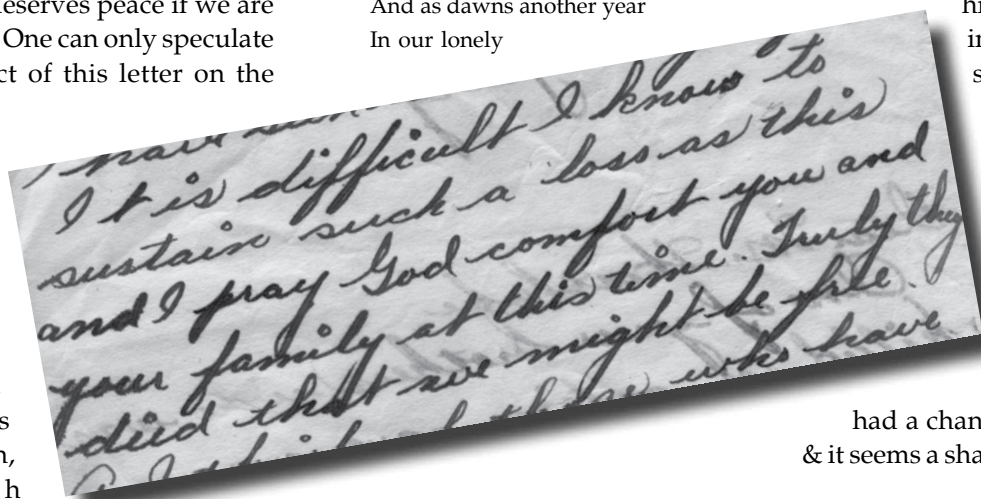 deserves peace if we are
One can only speculate
ct of this letter on the
And as dawns another year
In our lonely
hi
in
s
I have
It is difficult I know to
sustain such a loss as this
and I pray God comfort you and
your family at this time. Truly they
died that we might be free.
those who have
s
n,
h
had a chan
& it seems a sha